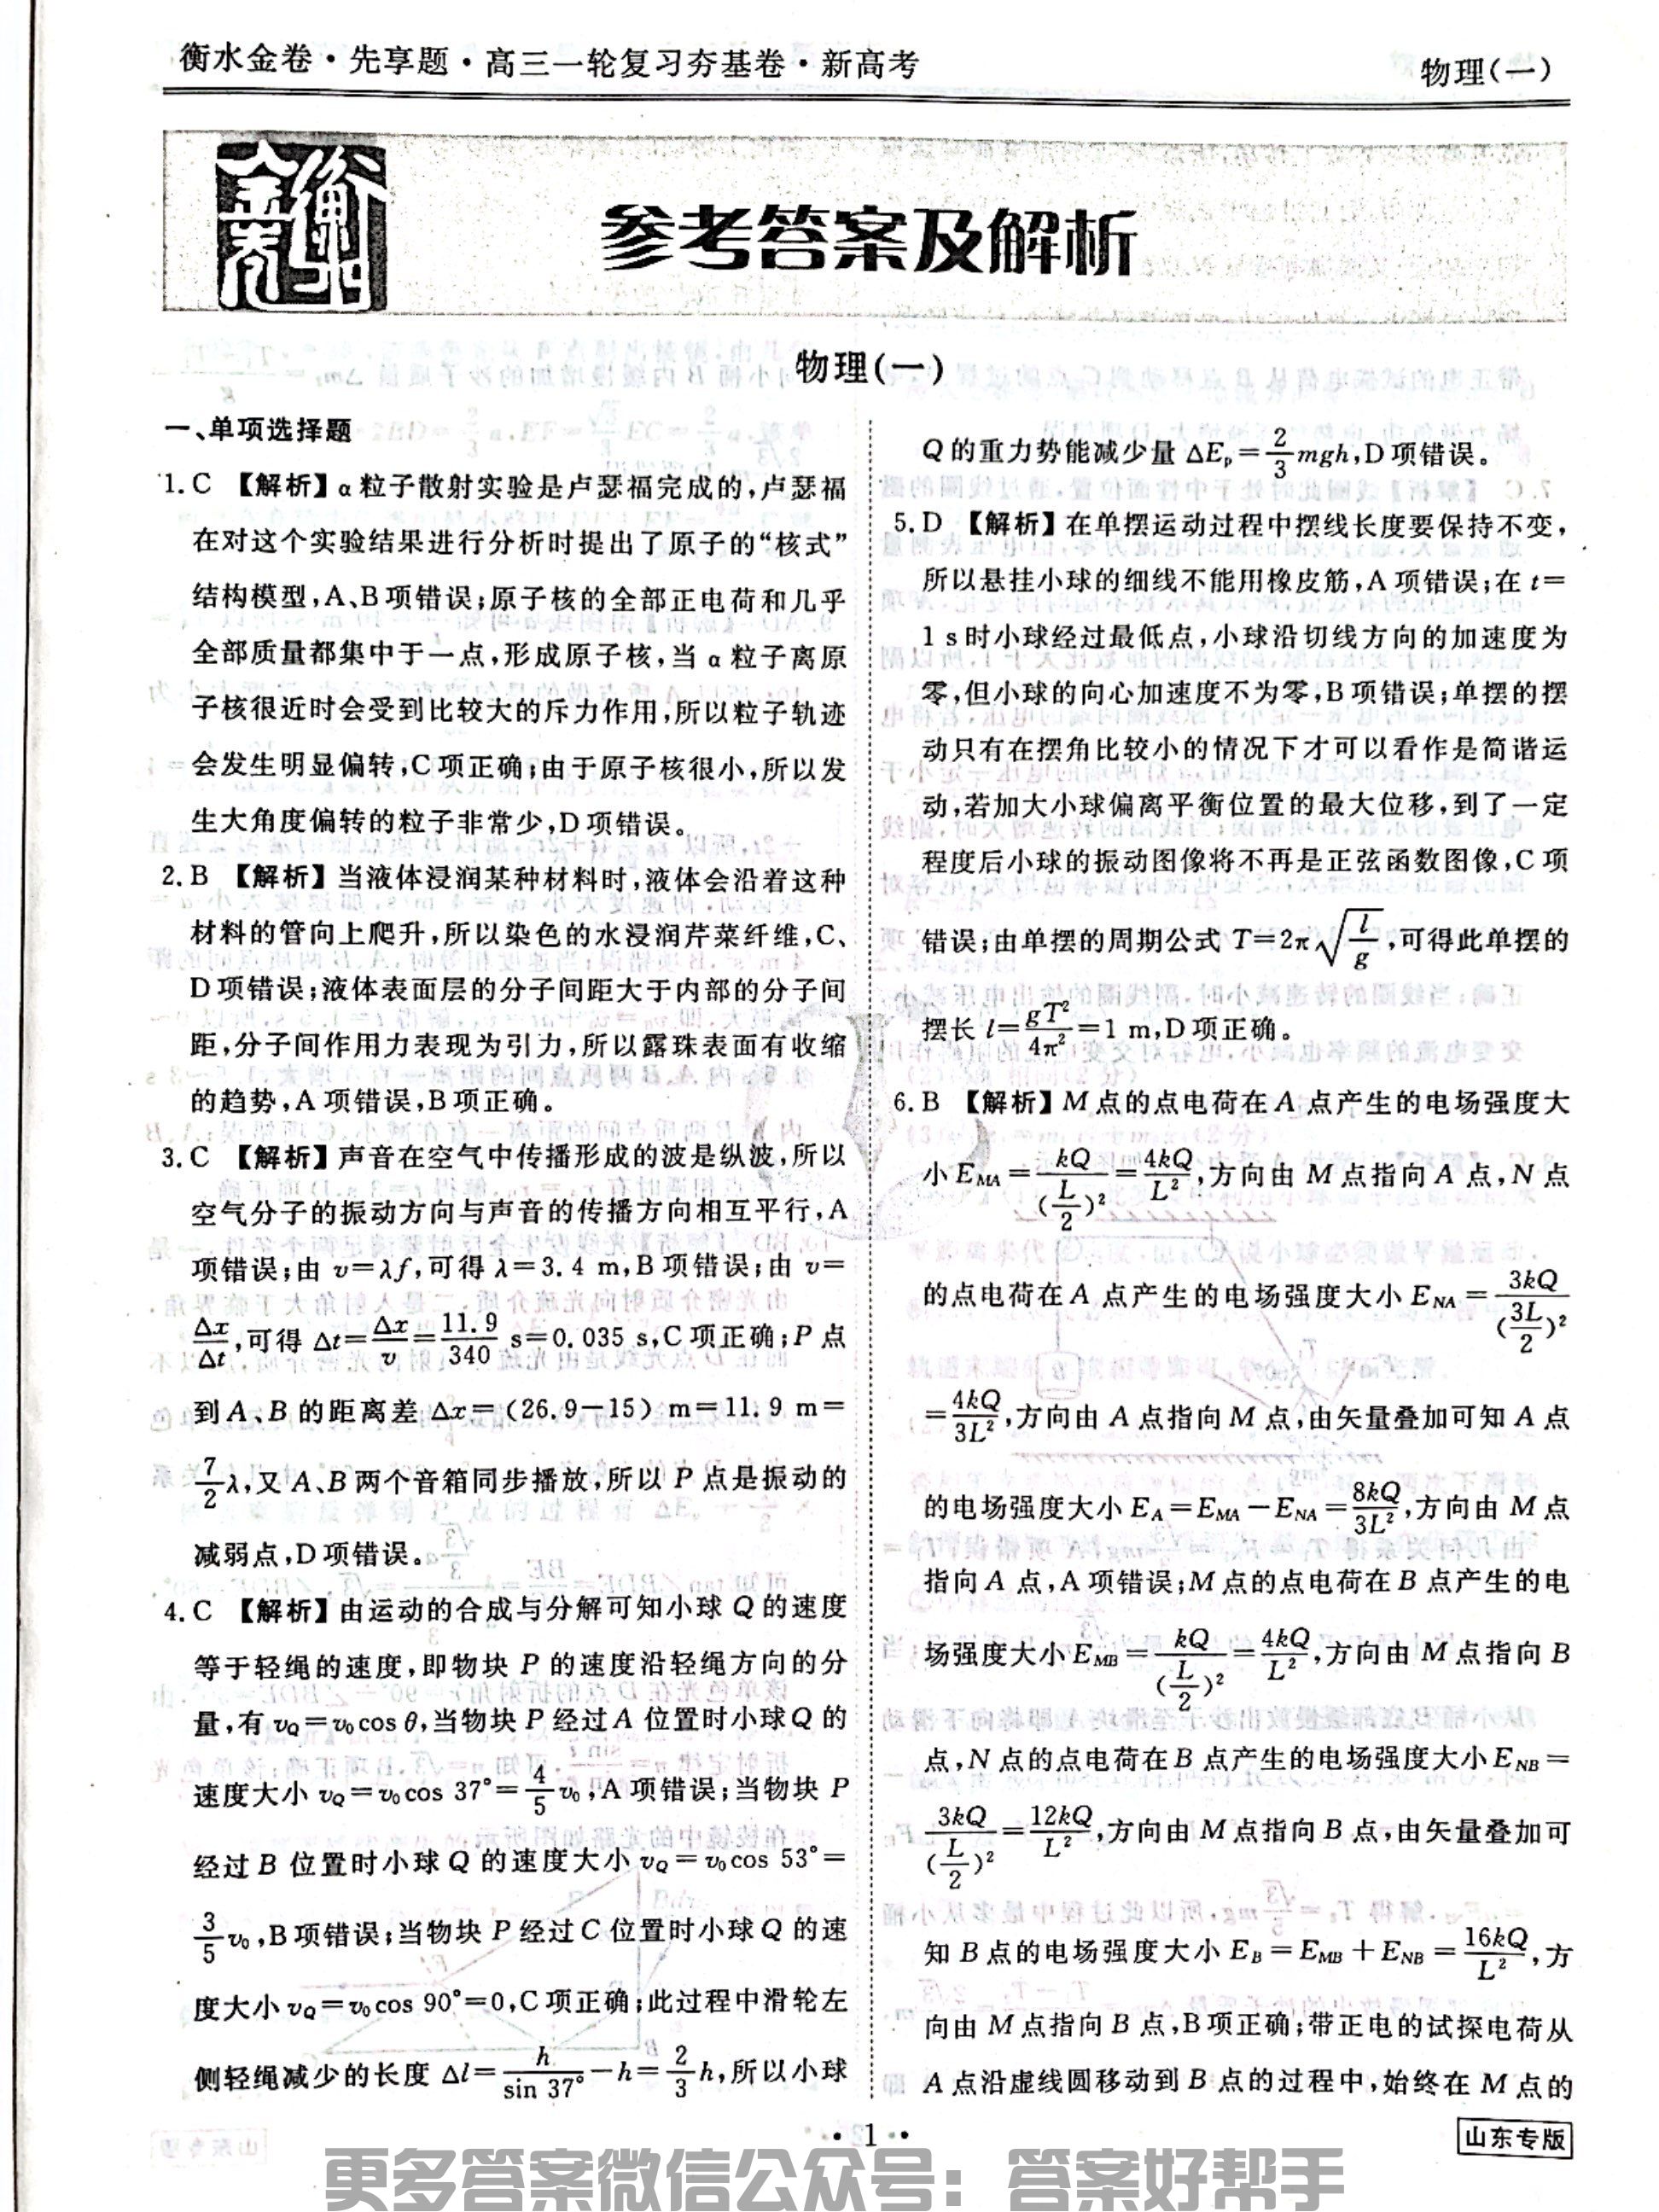 衡水金卷·先享题·高三一轮复习夯基卷·新高考
物理(一)
衡水金卷
参考答案及解析
物理(一)
一、单项选择题
1.C 【解析】α粒子散射实验是卢瑟福完成的,卢瑟福
在对这个实验结果进行分析时提出了原子的“核式”
结构模型,A、B项错误;原子核的全部正电荷和几乎
全部质量都集中于一点,形成原子核,当α粒子离原
子核很近时会受到比较大的斥力作用,所以粒子轨迹
会发生明显偏转,C项正确;由于原子核很小,所以发
生大角度偏转的粒子非常少,D项错误。
2.B 【解析】当液体浸润某种材料时,液体会沿着这种
材料的管向上爬升,所以染色的水浸润芹菜纤维,C、
D项错误;液体表面层的分子间距大于内部的分子间
距,分子间作用力表现为引力,所以露珠表面有收缩
的趋势,A项错误,B项正确。
3.C 【解析】声音在空气中传播形成的波是纵波,所以
空气分子的振动方向与声音的传播方向相互平行,A
项错误;由 v=λf,可得 λ=3.4 m,B项错误;由 v=
Δx/Δt,可得 Δt=Δx/v=11.9/340 s=0.035 s,C项正确;P点
到A、B的距离差 Δx=(26.9-15) m=11.9 m=
7/2λ,又A、B两个音箱同步播放,所以P点是振动的
减弱点,D项错误。
4.C 【解析】由运动的合成与分解可知小球Q的速度
等于轻绳的速度,即物块P的速度沿轻绳方向的分
量,有 v_Q=v₀cos θ,当物块P经过A位置时小球Q的
速度大小 v_Q=v₀cos 37°=4/5v₀,A项错误;当物块P
经过B位置时小球Q的速度大小 v_Q=v₀cos 53°=
3/5v₀,B项错误;当物块P经过C位置时小球Q的速
度大小 v_Q=v₀cos 90°=0,C项正确;此过程中滑轮左
侧轻绳减少的长度 Δl=h/sin 37°-h=2/3h,所以小球
Q的重力势能减少量 ΔEₚ=2/3mgh,D项错误。
5.D 【解析】在单摆运动过程中摆线长度要保持不变,
所以悬挂小球的细线不能用橡皮筋,A项错误;在t=
1 s时小球经过最低点,小球沿切线方向的加速度为
零,但小球的向心加速度不为零,B项错误;单摆的摆
动只有在摆角比较小的情况下才可以看作是简谐运
动,若加大小球偏离平衡位置的最大位移,到了一定
程度后小球的振动图像将不再是正弦函数图像,C项
错误;由单摆的周期公式 T=2π√(l/g),可得此单摆的
摆长 l=gT²/4π²=1 m,D项正确。
6.B 【解析】M点的点电荷在A点产生的电场强度大
小 E_MA=kQ/(L/2)²=4kQ/L²,方向由M点指向A点,N点
的点电荷在A点产生的电场强度大小 E_NA=3kQ/(3L/2)²
=4kQ/3L²,方向由A点指向M点,由矢量叠加可知A点
的电场强度大小 E_A=E_MA-E_NA=8kQ/3L²,方向由M点
指向A点,A项错误;M点的点电荷在B点产生的电
场强度大小 E_MB=kQ/(L/2)²=4kQ/L²,方向由M点指向B
点,N点的点电荷在B点产生的电场强度大小 E_NB=
3kQ/(L/2)²=12kQ/L²,方向由M点指向B点,由矢量叠加可
知B点的电场强度大小 E_B=E_MB+E_NB=16kQ/L²,方
向由M点指向B点,B项正确;带正电的试探电荷从
A点沿虚线圆移动到B点的过程中,始终在M点的
·1·
山东专版
更多答案微信公众号：答案好帮手